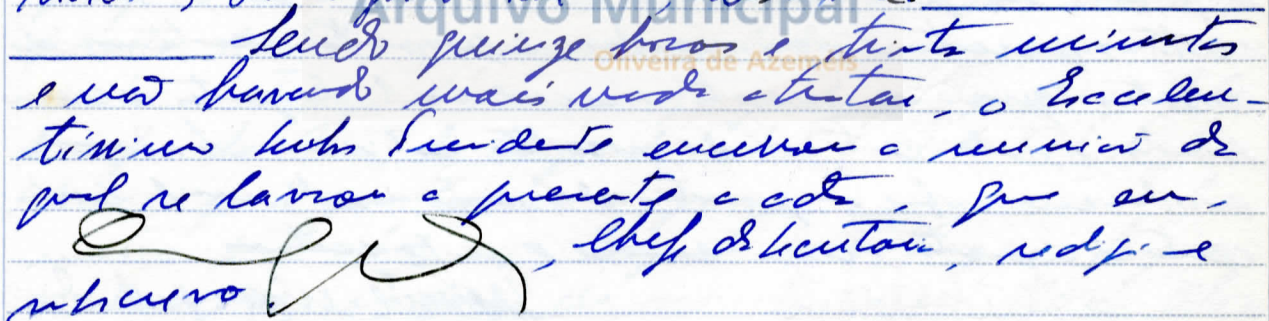 Arquivo Municipal
Oliveira de Azeméis
Sendo quinze horas e trinta minutos
e não havendo mais nada a tratar, o Excelen-
tíssimo Senhor Presidente encerrou a reunião da
qual se lavrou a presente acta, que eu,
, Chefe de Secretaria, redigi e
subscrevo.